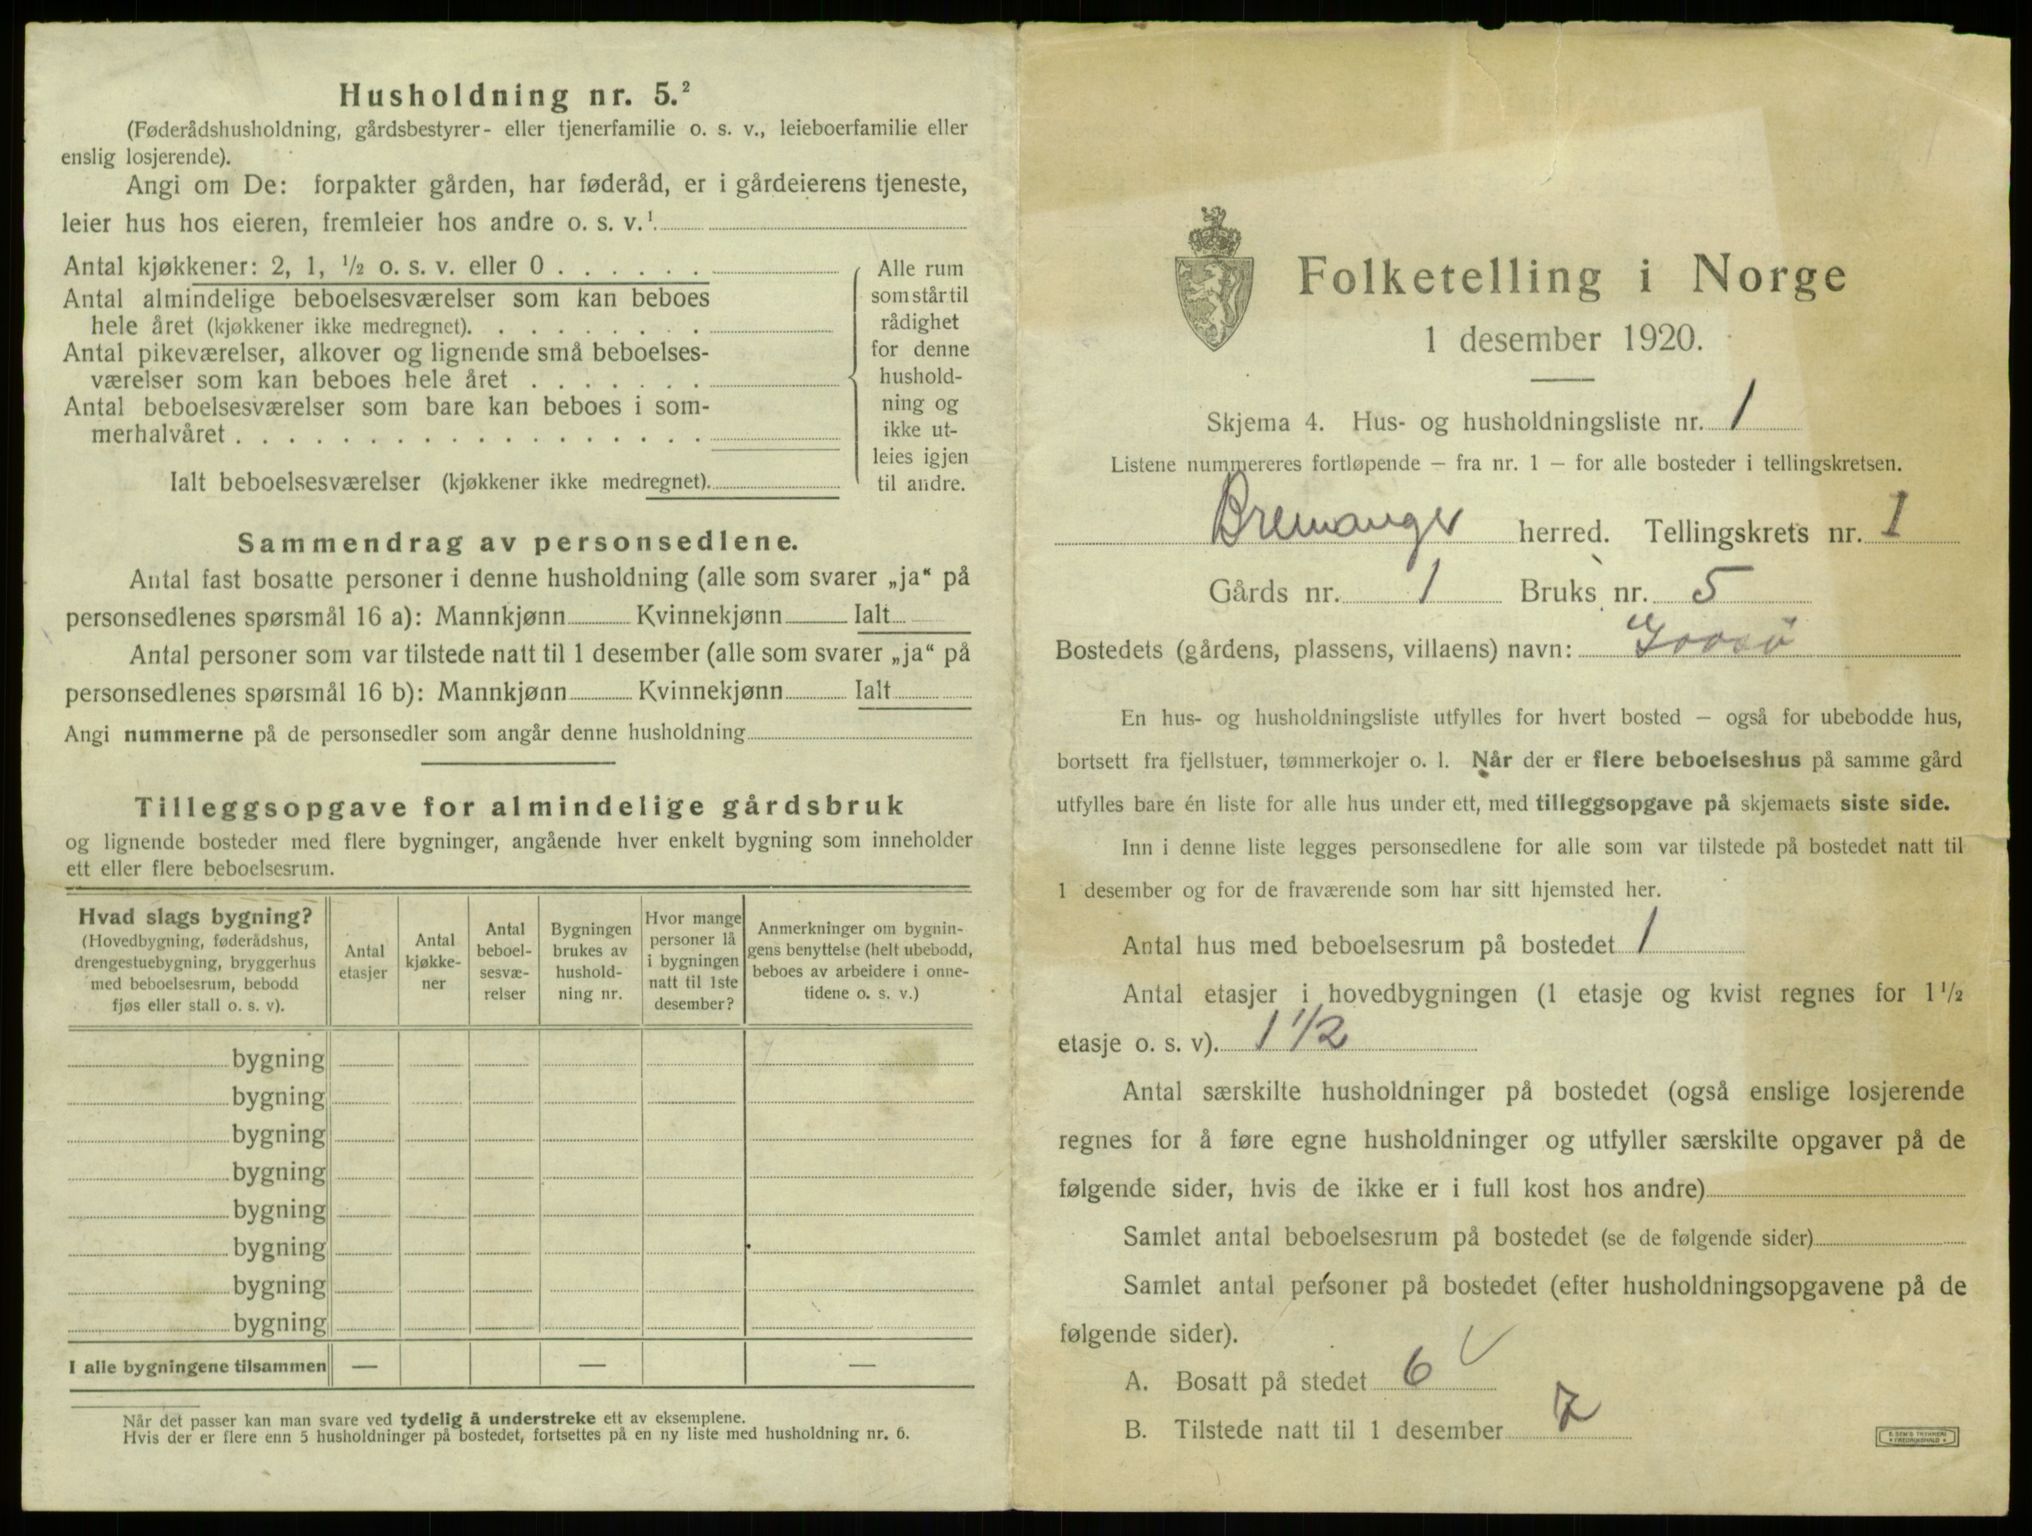 Husholdning nr. 5.²
(Føderådshusholdning, gårdsbestyrer- eller tjenerfamilie o. s. v., leieboerfamilie eller
enslig losjerende).
Angi om De: forpakter gården, har føderåd, er i gårdeierens tjeneste,
leier hus hos eieren, fremleier hos andre o. s. v.¹
Antal kjøkkener: 2, 1, ½ o. s. v. eller 0 . . . . . .
Antal almindelige beboelsesværelser som kan beboes
hele året (kjøkkener ikke medregnet). . . . . . . . .
Antal pikeværelser, alkover og lignende små beboelses-
værelser som kan beboes hele året . . . . . . .
Antal beboelsesværelser som bare kan beboes i som-
merhalvåret . . . . . . . . . . . . . . . . . .
Ialt beboelsesværelser (kjøkkener ikke medregnet).
Alle rum
som står til
rådighet
for denne
hushold-
ning og
ikke ut-
leies igjen
til andre.
Sammendrag av personsedlene.
Antal fast bosatte personer i denne husholdning (alle som svarer „ja“ på
personsedlenes spørsmål 16 a): Mannkjønn Kvinnekjønn Ialt
Antal personer som var tilstede natt til 1 desember (alle som svarer „ja“ på
personsedlenes spørsmål 16 b): Mannkjønn Kvinnekjønn Ialt
Angi nummerne på de personsedler som angår denne husholdning
Tilleggsopgave for almindelige gårdsbruk
og lignende bosteder med flere bygninger, angående hver enkelt bygning som inneholder
ett eller flere beboelsesrum.
Hvad slags bygning?
(Hovedbygning, føderådshus,
drengestuebygning, bryggerhus
med beboelsesrum, bebodd
fjøs eller stall o. s. v).
Antal
etasjer
Antal
kjøkke-
ner
Antal
beboel-
sesvæ-
relser
Bygningen
brukes av
hushold-
ning nr.
Hvor mange
personer lå
i bygningen
natt til 1ste
desember?
Anmerkninger om bygnin-
gens benyttelse (helt ubebodd,
beboes av arbeidere i onne-
tidene o. s. v.)
bygning
bygning
bygning
bygning
bygning
bygning
bygning
bygning
I alle bygningene tilsammen — — —
Når det passer kan man svare ved tydelig å understreke ett av eksemplene.
Hvis der er flere enn 5 husholdninger på bostedet, fortsettes på en ny liste med husholdning nr. 6.
Folketelling i Norge
1 desember 1920.
Skjema 4. Hus- og husholdningsliste nr. 1
Listene nummereres fortløpende – fra nr. 1 – for alle bosteder i tellingskretsen.
Bremanger herred. Tellingskrets nr. 1
Gårds nr. 1 Bruks nr. 5
Bostedets (gårdens, plassens, villaens) navn:
En hus- og husholdningsliste utfylles for hvert bosted – også for ubebodde hus,
bortsett fra fjellstuer, tømmerkojer o. l. Når der er flere beboelseshus på samme gård
utfylles bare én liste for alle hus under ett, med tilleggsopgave på skjemaets siste side.
Inn i denne liste legges personsedlene for alle som var tilstede på bostedet natt til
1 desember og for de fraværende som har sitt hjemsted her.
Antal hus med beboelsesrum på bostedet 1
Antal etasjer i hovedbygningen (1 etasje og kvist regnes for 1½
etasje o. s. v). 1 1/2
Antal særskilte husholdninger på bostedet (også enslige losjerende
regnes for å føre egne husholdninger og utfyller særskilte opgaver på de
følgende sider, hvis de ikke er i full kost hos andre)
Samlet antal beboelsesrum på bostedet (se de følgende sider)
Samlet antal personer på bostedet (efter husholdningsopgavene på de
følgende sider).
A. Bosatt på stedet 6
B. Tilstede natt til 1 desember 7